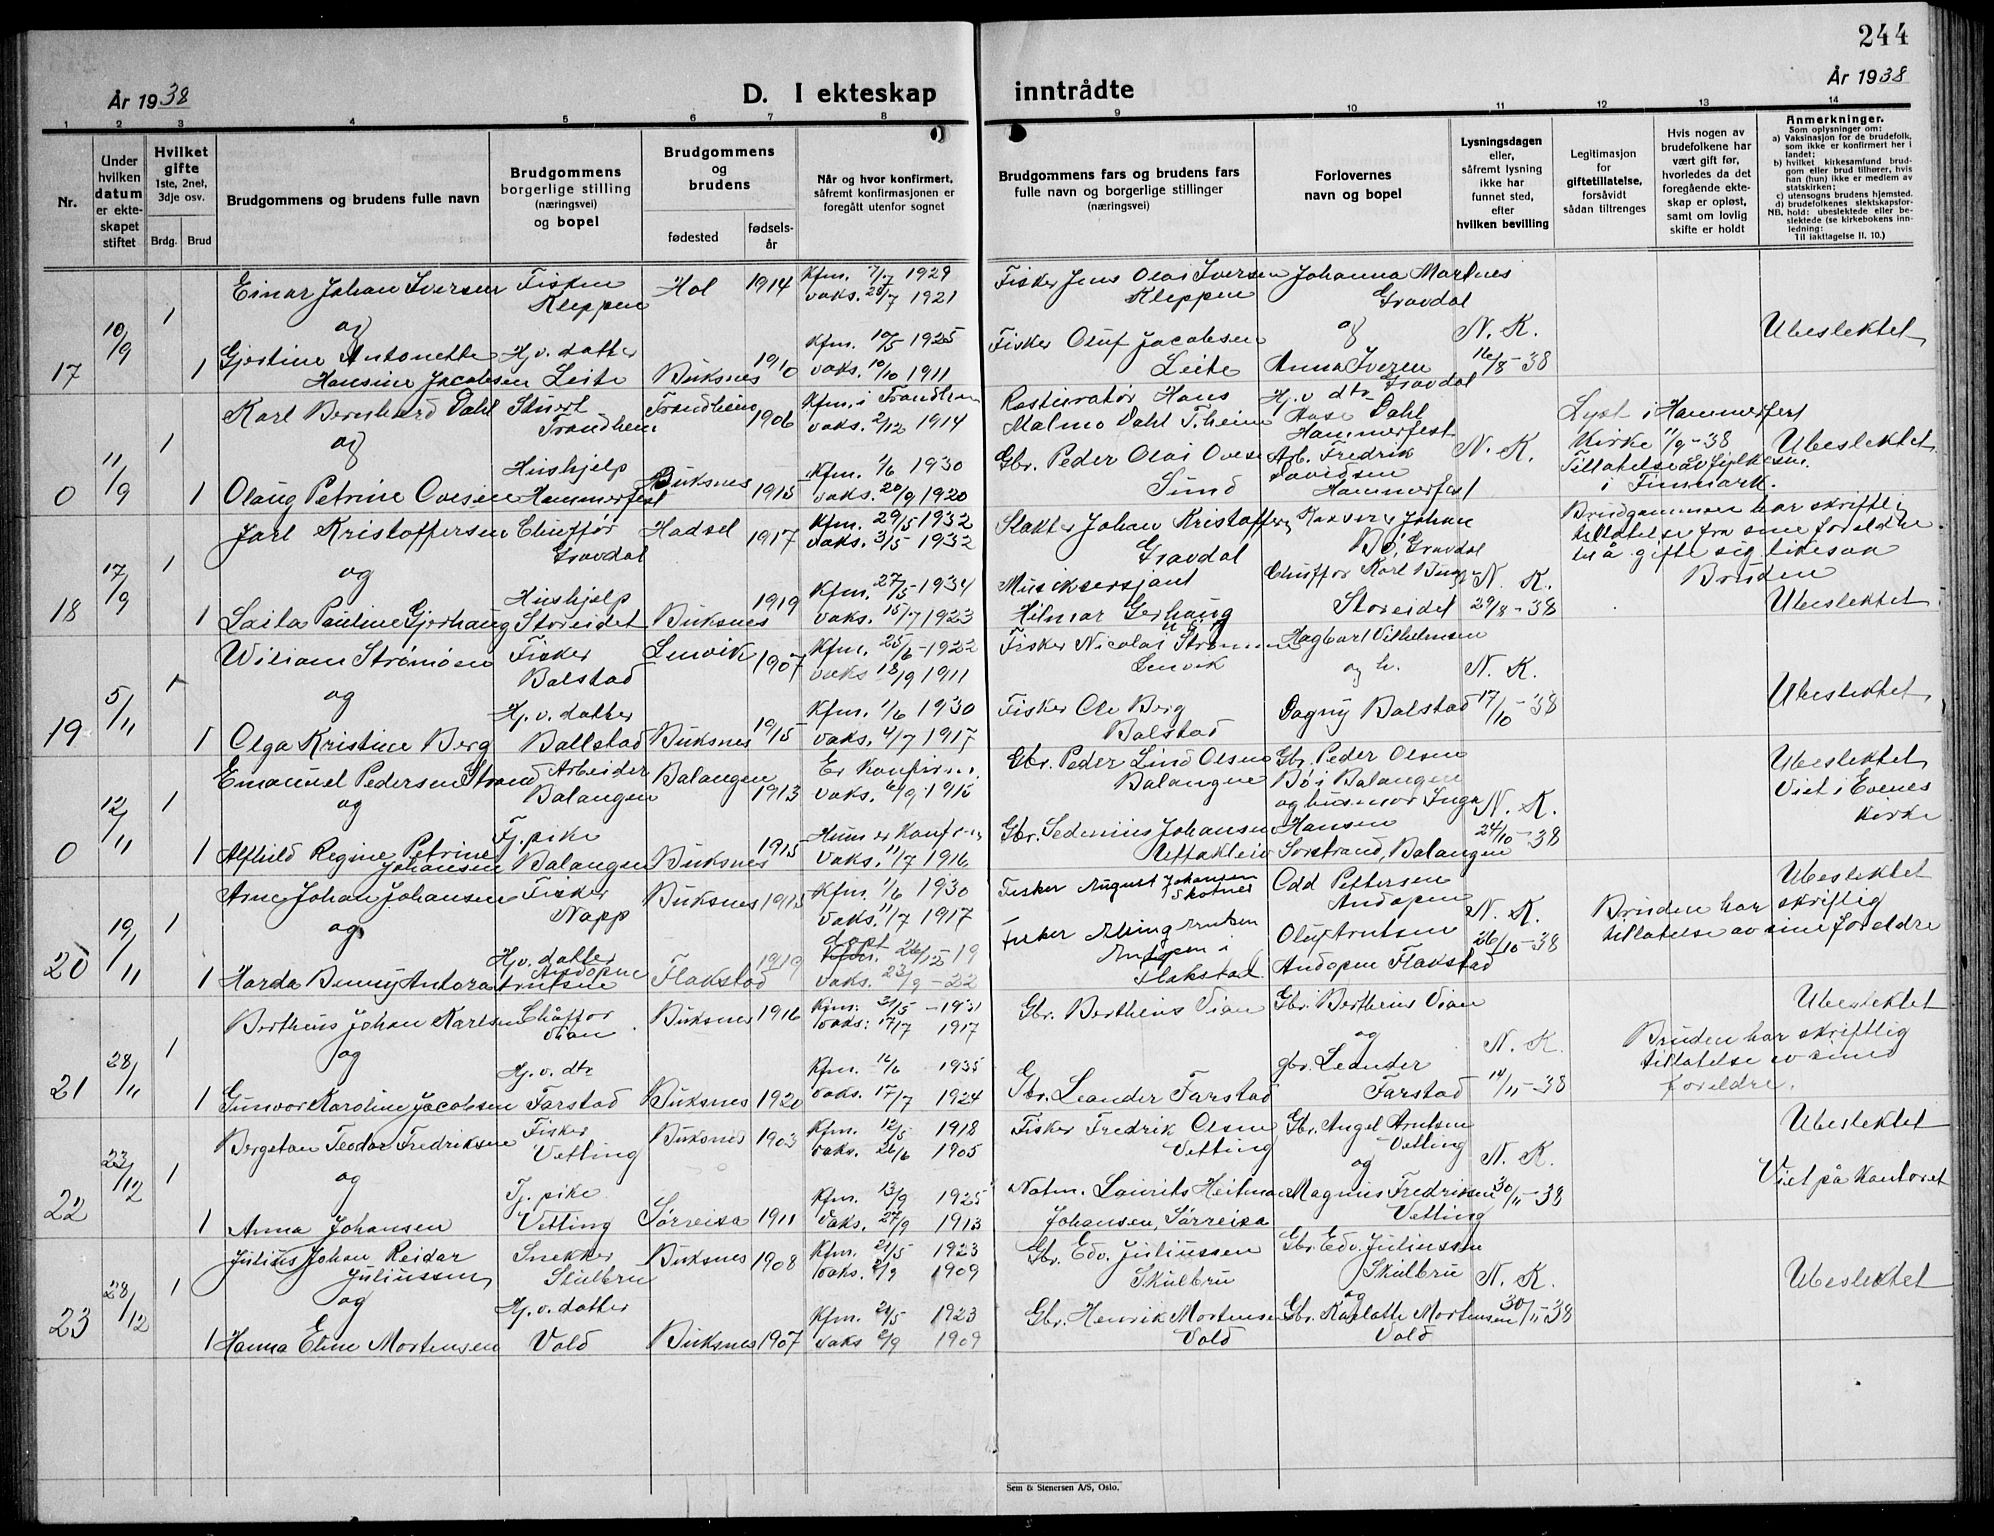 244
År 1938
D. I ekteskap inntrådte
År 1938
1 2 3 4 5 6 7 8 9 10 11 12 13 14
Nr.
Under hvilken datum er ekteskapet stiftet
Hvilket gifte 1ste, 2net, 3dje osv.
Brdg. Brud
Brudgommens og brudens fulle navn
Brudgommens borgerlige stilling (næringsvei) og bopel
Brudgommens og brudens
fødested
fødselsår
Når og hvor konfirmert, såfremt konfirmasjonen er foregått utenfor sognet
Brudgommens fars og brudens fars fulle navn og borgerlige stillinger (næringsvei)
Forlovernes navn og bopel
Lysningsdagen eller, såfremt lysning ikke har funnet sted, efter hvilken bevilling
Legitimasjon for giftetillatelse, forsåvidt sådan tiltrenges
Hvis nogen av brudefolkene har vært gift før, hvorledes da det foregående ekteskap er opløst, samt om lovlig skifte er holdt
Anmerkninger.
Som oplysninger om:
a) Vaksinasjon for de brudefolk, som ikke er konfirmert her i landet;
b) hvilket kirkesamfund brudgom eller brud tilhører, hvis han (hun) ikke er medlem av statskirken;
c) utensogns brudens hjemsted.
d) brudefolkenes slektskapsforhold: ubeslektede eller beslektede (se kirkebokens innledning:
NB. Til iakttagelse II. 10.)
17 10/9 1 Einar Johan Iversen Fisker Kleppen Hol 1914 Kfm. 7/7 1929 vaks. 20/7 1921 Fisker Jens Olai Iversen Kleppen Johanna Martnes Gravdal
og
1 Gjertine Antonette Hansine Jacobsen Hj. v. datter Leite Buksnes 1910 Kfm. 10/5 1925 vaks. 10/10 1911 Fisker Oluf Jacobsen Leite og Anna Iversen Gravdal N. K. 16/8-38 Ubeslektet
0 11/9 1 Karl Bernhard Dahl Stuert Trondheim Trondheim 1906 Kfm. i Trondhem vaks. 2/12 1914 Restauratør Hans Malmo Dahl T.heim Hj. v dtr Aase Dahl Hammerfest
og
1 Olaug Petrine Ovesen Hushjelp Hammerfest Buksnes 1915 Kfm. 1/6 1930 vaks. 20/9 1920 Gbr. Peder Olai Ovesen Sund Arb. Fredrik Davidsen Hammerfest N. K. Lyst i Hammerfest Kirke 11/9-38 Tillatelse av fylkesm. i Finmark. Ubeslektet
18 17/9 1 Jarl Kristoffersen Chuffør Gravdal Hadsel 1917 Kfm. 29/5 1932 vaks. 3/5 1932 Slakter Johan Kristoffers Gravdal Johan Bø, Gravdal
og
1 Laila Pauline Gjerhaug Hushjelp Storeidet Buksnes 1919 Kfm. 27/5-1934 vaks. 15/7 1923 Musiksersjant Hilmar Gerhaug Chuffør Karl Storeidet N. K. 29/8-38 Brudgommen har skriftlig tillatelse fra sine foreldre til å gifte sig likesaa Bruden Ubeslektet
19 5/11 1 Wiliam Strømøen Fisker Balstad Lenvik 1907 Kfm. 25/6-1922 vaks 18/9 1911 Fisker Nicolai Strømmen Lenvik Hagbart Vilhelmsen
og
1 Olga Kristine Berg Hj. v. datter Ballstad Buksnes 1915 Kfm. 1/6 1930 vaks. 4/7 1917 Fisker Ole Berg Balstad og h. Dagny Balstad N. K. 17/10-38 Ubeslektet
0 12/11 1 Emanuel Pedersen Strand Arbeider Balangen Balangen 1913 Er Konfirm. vaks. 6/9 1915 Gbr. Peder Lind Olsen Balangen Gbr. Peder Olsen Bø i Balangen
og
1 Alfhild Regine Petrine Johansen Tj. pike Balangen Buksnes 1915 Hun er Konfirm vaks. 11/7 1916 Gbr. Sedenius Johansen Uttakleiv og husmor Inga Hansen Sorstrand, Balangen N. K. 24/10-38 Ubeslektet Viet i Evenes Kirke
20 19/11 1 Arne Johan Johansen Fisker Napp Buksnes 1915 Kfm. 1/6 1930 vaks. 11/7 1917 Fisker August Johansen Skotnes Odd Pettersen Andopen
og
1 Harda Benny Antora Arntsen Hj. v. datter Andopen Flakstad 1919 døpt 26/12-19 vaks. 23/9-22 Fisker Arntsen Andopen i Flakstad Oluf Arntsen Andopen Flakstad N. K. 26/10-38 Bruden har skriftlig tillatelse av sine foreldre Ubeslektet
21 28/11 1 Bertheus Johan Karlsen Chaffør Vian Buksnes 1916 Kfm. 31/5-1931 vaks: 17/7 1917 Gbr. Bertheus Vian Gbr. Bertheus Vian
og
1 Gunvor Karoline Jacobsen Hj. v. dtr Farstad Buksnes 1920 Kfm. 16/6 1935 vaks. 17/7 1924 Gbr. Leander Farstad og gbr. Leander Farstad N. K. 14/11-38 Bruden har skriftlig tillatelse av sine foreldre. Ubeslektet
22 23/12 1 Bergeton Teodor Fredriksen Fisker Vetting Buksnes 1903 Kfm. 12/5 1918 vaks. 26/6 1905 Fisker Fredrik Olsen Vetting Gbr. Angel Arntsen Vetting
og
1 Anna Johansen Tj. pike Vetting Sørreisa 1911 Kfm. 13/9 1925 vaks. 27/9 1913 Notm. Laurits Heitman Johansen, Sørreisa og Magnus Fredriksen Vetting N. K. 30/11-38 Ubeslektet Viet på kantoret
23 28/12 1 Julius Johan Reidar Juliussen Snekker Skulbru Buksnes 1908 Kfm. 21/5 1923 vaks. 2/9 1909 Gbr. Edv. Juliussen Skulbru Gbr. Edv. Juliussen Skulbru
og
1 Hanna Eline Mortensen Hj. v. datter Vold Buksnes 1907 Kfm. 21/5 1923 vaks 2/9 1909 Gbr. Henrik Mortensen Vold og Gbr. Mortensen Vold N. K. 30/11-38 Ubeslektet
Sem & Stenersen A/S, Oslo.